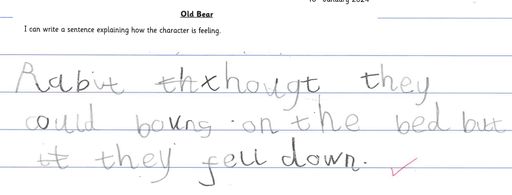 Old Bear
I can write a sentence explaining how the character is feeling.
Rabit thxhougt they
could boung on the bed but
it they fell down.